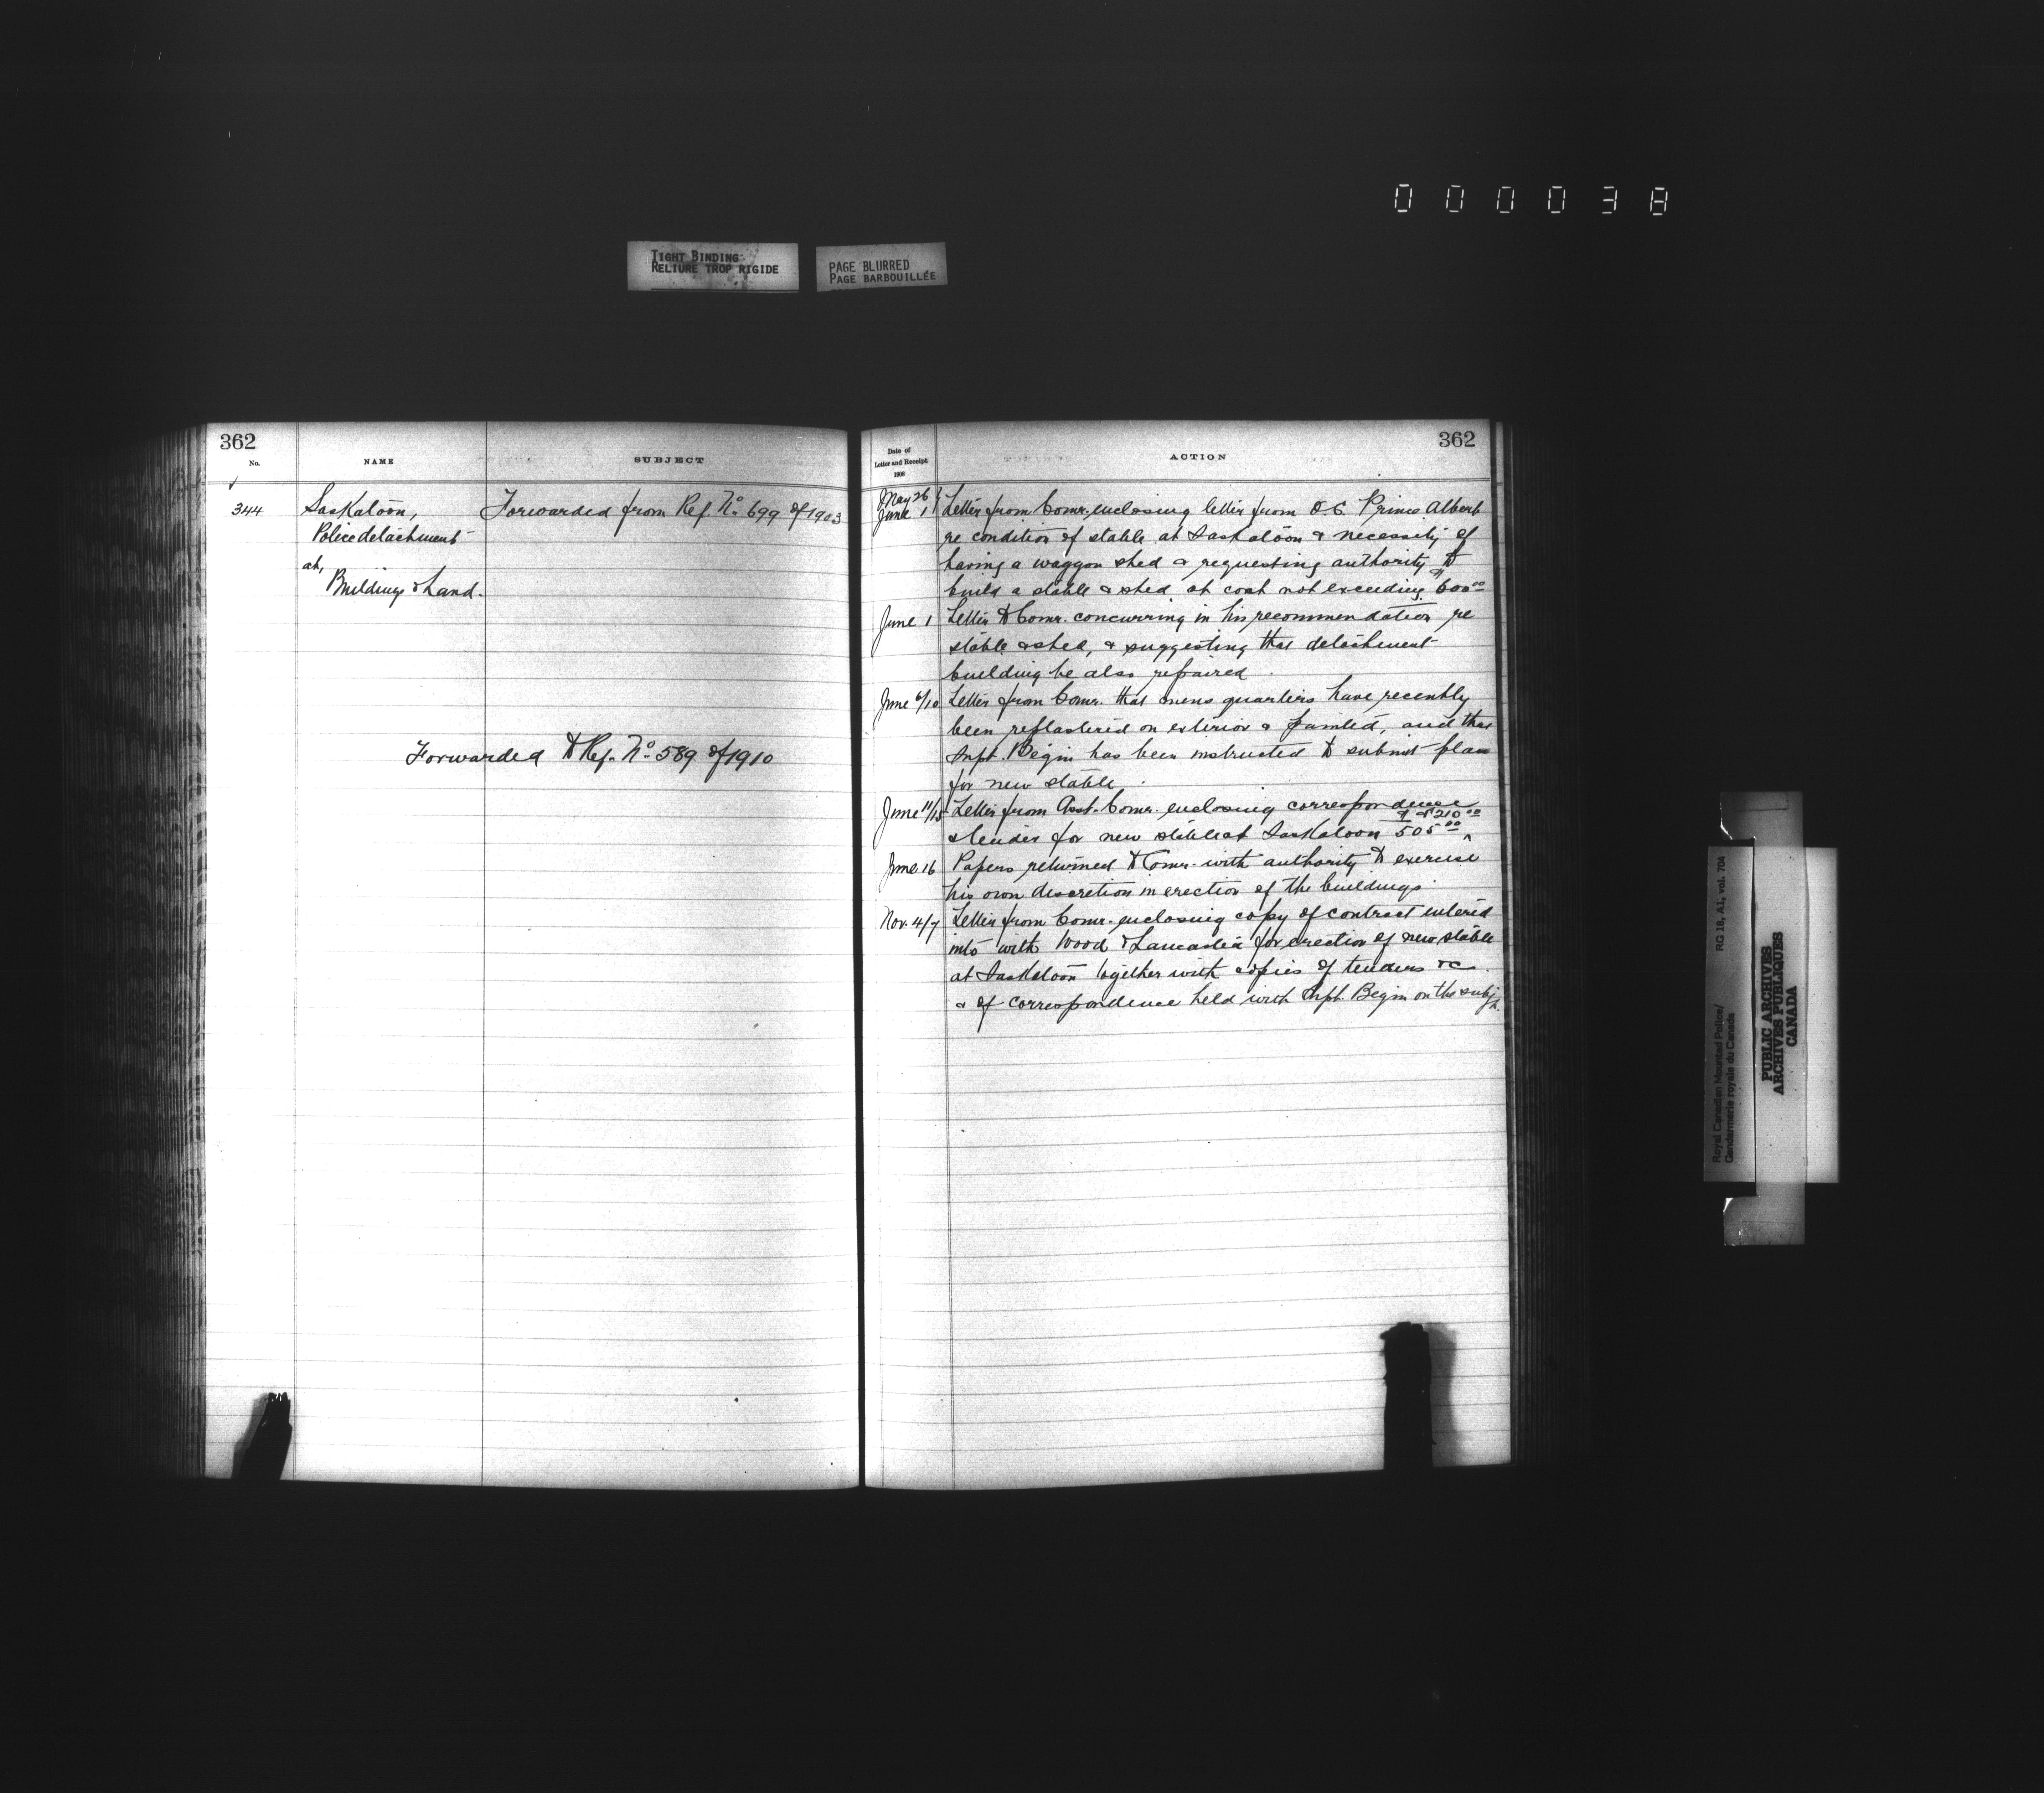 000038
TIGHT BINDING
RELIURE TROP RIGIDE
PAGE BLURRED
PAGE BARBOUILLÉE
362
No.
NAME
SUBJECT
344
Saskatoon,
Police detachment
at,
Buildings & Land.
Forwarded from Ref. No. 699 of 1903
Forwarded to Ref. No. 589 of 1910
362
Date of
Letter and Receipt
1908
ACTION
May 26
June 1
Letter from Comr. enclosing letter from O.C. Prince Albert
re condition of stable at Saskatoon & necessity of
having a waggon shed & requesting authority to
build a stable & shed at cost not exceeding $600.00
June 1 Letter to Comr. concurring in his recommendation re
stable & shed, & suggesting that detachment
building be also repaired
June 6/10 Letter from Comr. that mens quarters have recently
been replastered on exterior & painted, and that
Inspt. Begin has been instructed to submit plan
for new stable.
June 11/15 Letter from Asst. Comr. enclosing correspondence
& tender for new stable at Saskatoon $505.00 & $210.00
June 16 Papers returned to Comr. with authority to exercise
his own discretion in erection of the buildings.
Nov. 4/7 Letter from Comr. enclosing copy of contract entered
into with Wood & Lancaster for erection of new stable
at Saskatoon together with copies of tenders &c
& of correspondence held with Inspt. Begin on the subjt.
Royal Canadian Mounted Police/
Gendarmerie royale du Canada
RG 18, A1, vol. 70A
PUBLIC ARCHIVES
ARCHIVES PUBLIQUES
CANADA